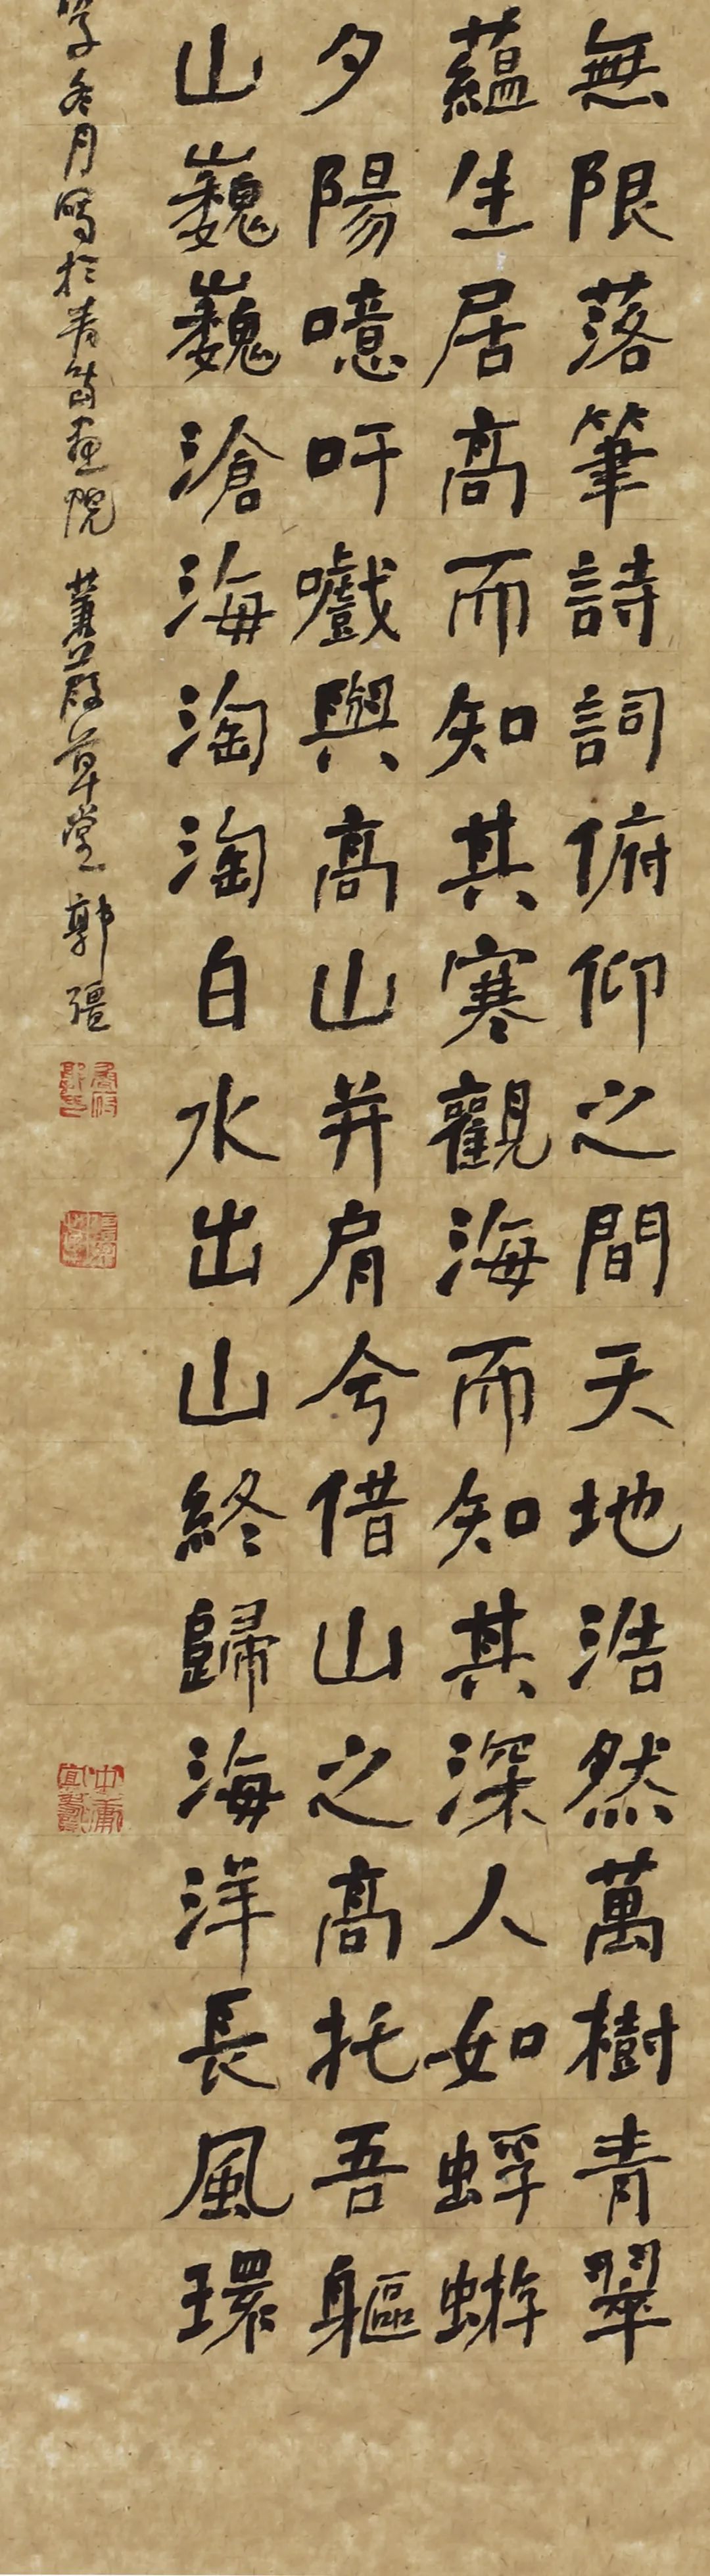 無限落筆詩詞俯仰之間天地浩然萬樹青翠
蘊生居高而知其寒觀海而知其深人如蜉蝣
夕陽噫吁戲與高山并肩兮借山之高托吾軀
山巍巍滄海淘淘白水出山終歸海洋長風環
冬月寫於青笛畫院 蒹葭草堂 郭疆